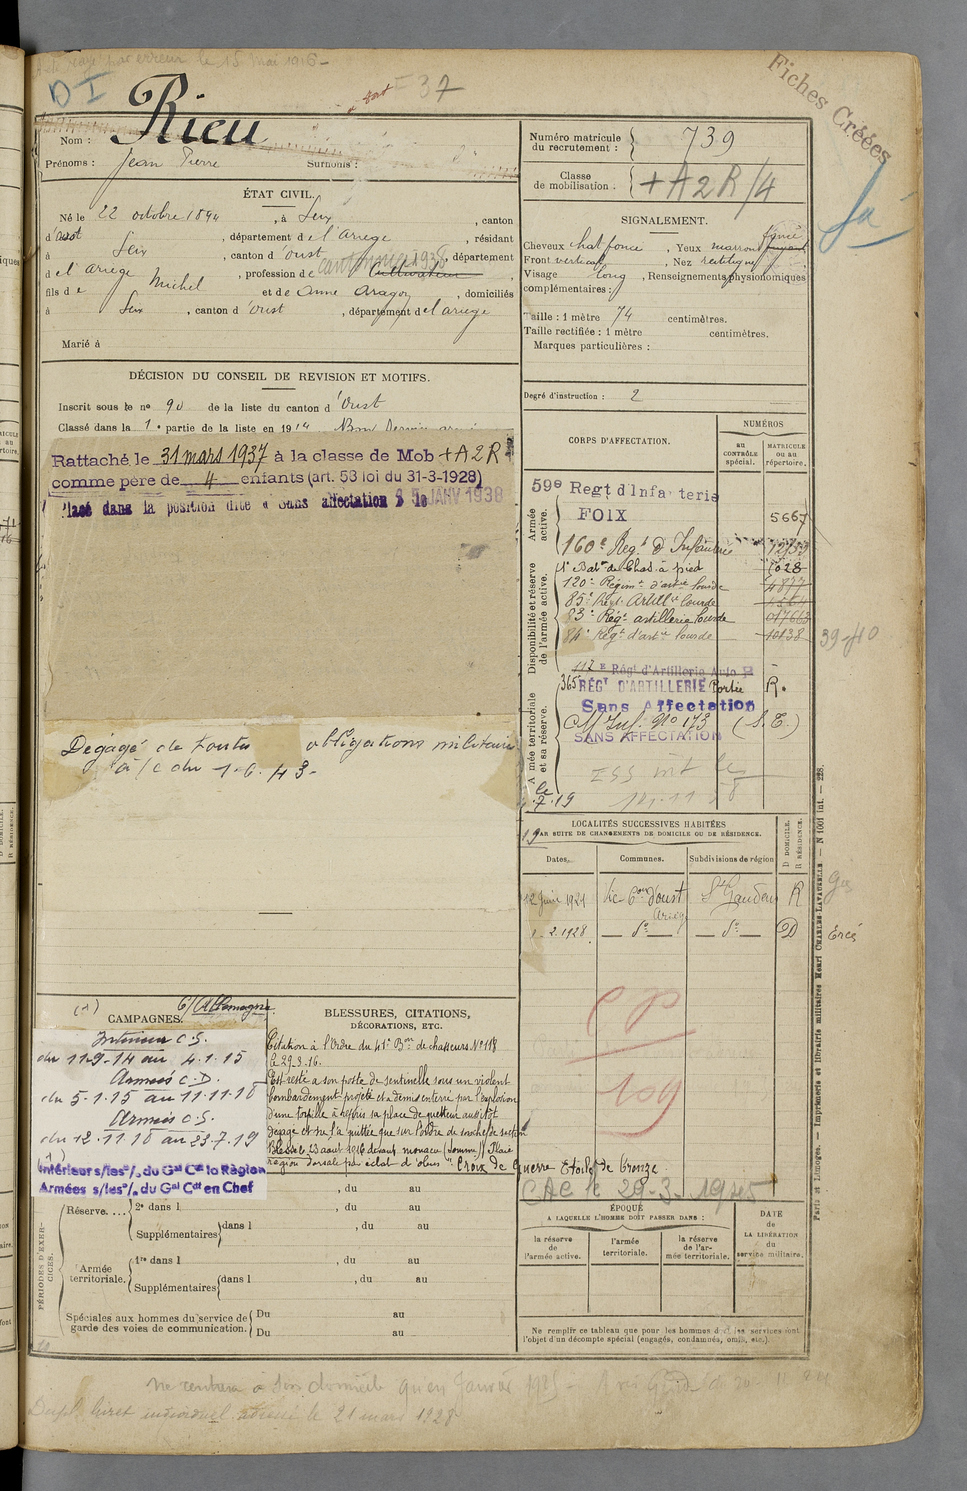 rayé par erreur le 15 mai 1916 -
D I
37
Fiches Créées
Rieu
Nom :
Prénoms : Jean Pierre Surnoms :
Numéro matricule du recrutement : 739
Classe de mobilisation . + A 2 R / 4
ÉTAT CIVIL.
Né le 22 octobre 1894 , à Seix , canton
d'oust , département de l'ariège , résidant
à Seix , canton d'oust , département
d el'ariège , profession de cantonnier 1938 Cultivateur
fils de Michel et de Anne Aragon , domiciliés
à Seix , canton d'oust , département de l'ariège
Marié à
SIGNALEMENT.
Cheveux chat foncé , Yeux marron
Front vertical , Nez rectiligne
Visage long , Renseignements physionomiques
complémentaires :
Taille : 1 mètre 74 centimètres.
Taille rectifiée : 1 mètre centimètres.
Marques particulières :
Degré d'instruction : 2
DÉCISION DU CONSEIL DE REVISION ET MOTIFS.
Inscrit sous le nº 90 de la liste du canton d'Oust
Classé dans la 1e partie de la liste en 1914
Rattaché le 31 mars 1937 à la classe de Mob + A 2 R
comme père de 4 enfants (art. 53 loi du 31-3-1928)
Placé dans la position dite « Sans affectation » le 15 JANV 1938
Dégagé de toutes obligations militaires
à/c du 1-6-43-
CORPS D'AFFECTATION.
NUMÉROS
au CONTRÔLE spécial.
MATRICULE ou au répertoire.
Armée active.
59e Regt d'Infanterie
FOIX 5667
Disponibilité et réserve de l'armée active.
160e Regt d'Infanterie
1r Batn de Chas. à pied 7028
120e Régimt d'artie lourde 4877
85e Régt Artillie lourde
83e Rég. artillerie lourde
84e Régt d'artie lourde 10138
39-40
112e Rég d'Artillerie Auto R
Armée territoriale et sa réserve.
365 RÉGT D'ARTILLERIE Portée R.
Sans Affectation
CM Inf. Nº 173 (S. E.)
SANS AFFECTATION
LOCALITÉS SUCCESSIVES HABITÉES
PAR SUITE DE CHANGEMENTS DE DOMICILE OU DE RÉSIDENCE.
Dates. Communes. Subdivisions de région D DOMICILE. R RÉSIDENCE.
12 Juin 1921 d'oust Ariège St Gaudens R
1-2.1928 - do - - do - D
Ercé
CP
109
C/ Allemagne
CAMPAGNES.
Intérieur C.S.
du 11-9-14 au 4.1.15
Armées C.D.
du 5-1-15 au 11.11.18
Armées C.S.
du 12.11.18 au 23.7.19
Intérieur s/les o/. du Gal Cdt la Région
Armées s/les o/. du Gal Cdt en Chef
BLESSURES, CITATIONS,
DÉCORATIONS, ETC.
Citation à l'Ordre du 41e Bon de chasseurs Nº 118
le 29.3.16.
Est resté à son poste de sentinelle sous un violent
bombardement projeté et à demi enterré par l'explosion
d'une torpille a repris sa place de guetteur aussitôt
dégagé et ne l'a quittée que sur l'ordre de son chef de section
Blessé le 23 août 1916 devant monacu (Somme) Plaie
région dorsale par éclat d'obus. Croix de Guerre Etoile de bronze
CAC le 29-3-1945
PÉRIODES D'EXERCICES.
, du au
Réserve.... 2e dans l , du au
Supplémentaires dans l , du au
Armée territoriale. 1re dans l , du au
Supplémentaires dans l , du au
Spéciales aux hommes du service de garde des voies de communication. Du au
Du au
ÉPOQUE
A LAQUELLE L'HOMME DOIT PASSER DANS :
la réserve de l'armée active.
l'armée territoriale.
la réserve de l'armée territoriale.
DATE de LA LIBÉRATION du service militaire.
Ne remplir ce tableau que pour les hommes dont les services font
l'objet d'un décompte spécial (engagés, condamnés, omis, etc.).
Paris et Limoges. — Imprimerie et librairie militaires Henri CHARLES-LAVAUZELLE — N 1001 Int. — 228.
ne rentrera à son domicile qu'en Janvier 1925 -
Dupl. livret individuel adressé le 21 mars 1928